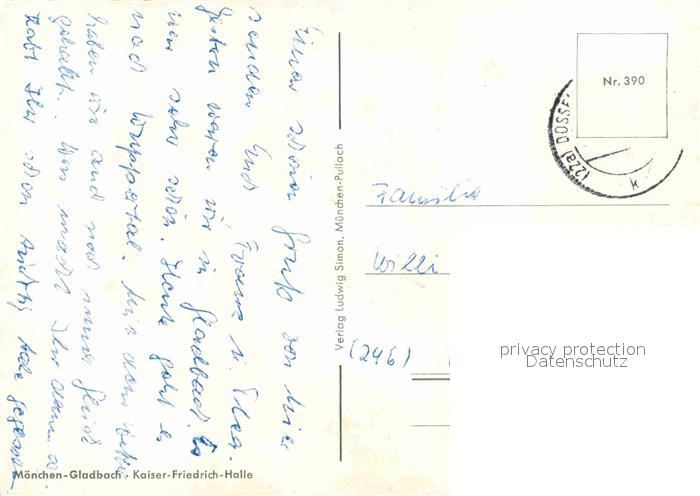 Einen schönen Gruß von hier
senden Euch Franz u. Elea.
Gestern waren wir in Gladbach. Es
war sehr schön. Heute geht es
nach Wuppertal. Mit dem
haben wir auch noch immer Glück
gehabt. Was macht Ihr denn so
Habt Ihr schon tüchtig
Mönchen-Gladbach, Kaiser-Friedrich-Halle
Verlag Ludwig Simon, München-Pullach
Nr. 390
(22a) DÜSSE
k
Familie
Willi
(246)
privacy protection
Datenschutz